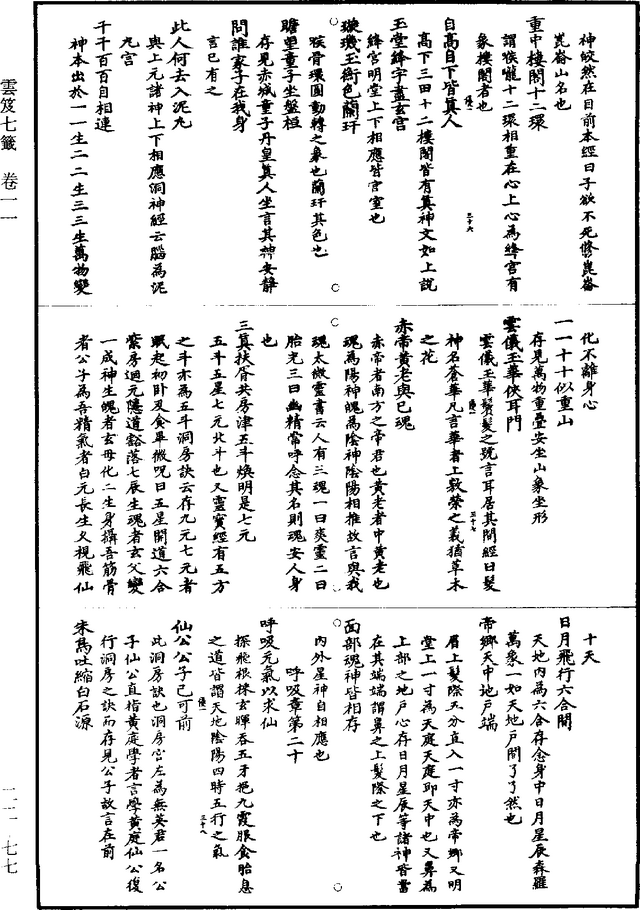 神皎然在目前本經曰子欲不死修崑崙
崑崙山名也
重中樓閣十二環
謂喉嚨十二環相重在心上心為絳宮有
象樓閣者也
自高自下皆真人
高下三田十二樓閣皆有真神文如上說
玉堂絳宇盡玄宮
絳宮明堂上下相應皆宮室也
璇璣玉衡色蘭玕
喉骨環圓動轉之象也蘭玕其色也
瞻望童子坐盤桓
存見赤城童子丹皇真人坐言其神安靜
問誰家子在我身
言已有之
此人何去入泥丸
與上元諸神上下相應洞神經云腦為泥
丸宮
千千百百自相連
神本出於一一生二二生三三生萬物變
化不離身心
一一十十似重山
存見萬物重疊安坐山象坐形
雲儀玉華俠耳門
雲儀玉華鬢髮之號言耳居其間經曰髮
神名蒼華凡言華者上敷榮之義猶草木
之花
赤帝黃老與己魂
赤帝者南方之帝君也黃老者中黃老也
魂為陽神魄為陰神陰陽相推故言與我
魂太微靈書云人有三魂一曰爽靈二曰
胎光三曰幽精常呼念其名則魂安人身
也
三真扶胥共房津五斗煥明是七元
五斗五星七元北斗也又靈寶經有五方
之斗亦為五斗洞房訣云存九元七元者
眠起初卧及食畢微呪曰五星開道六合
紫房迴元隱道豁落七辰生魂者玄父變
一成神生魄者玄母化二生身攝吾筋骨
者公子為吾精氣者白元長生久視飛仙
十天
日月飛行六合間
天地內為六合存念身中日月星辰森羅
萬象一如天地戶間了了然也
帝鄉天中地戶端
眉上髮際五分直入一寸亦為帝鄉又明
堂上一寸為天庭天庭卽天中也又鼻為
上部之地戶心存日月星辰等諸神皆當
在其端端謂鼻之上髮際之下也
面部魂神皆相存
內外星神自相應也
呼吸章第二十
呼吸元氣以求仙
採飛根採玄暉吞五牙挹九霞服食胎息
之道皆謂天地陰陽四時五行之氣
仙公公子已可前
此洞房訣也洞房宮左為無英君一名公
子仙公直指黃庭學者言學黃庭仙公復
行洞房之訣而存見公子故言在前
朱鳥吐縮白石源
雲笈七籤 卷一一
二二—七七
三十六
三十七
三十八